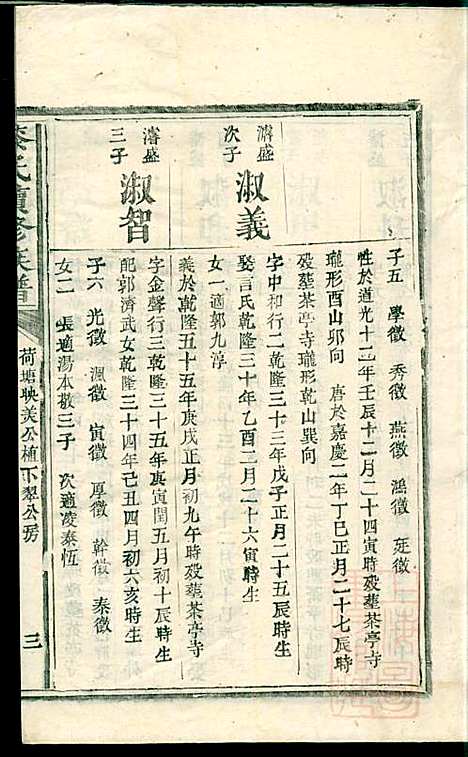 子五 學徵 秀徵 燕徵 鴻徵 廷徵
性於道光十二年壬辰十二月二十四寅時殁塟茶亭寺
瓏形酉山卯向 唐於嘉慶二年丁巳正月二十七辰時
殁塟茶亭寺瓏形乾山巽向
濟盛
次子
淑義
字中和行二乾隆三十三年戊子正月二十五辰時生
娶言氏乾隆三十年乙酉二月二十六寅時生
女一適郭九淳
義於乾隆五十五年庚戌正月初九午時殁塟茶亭寺
濬盛
三子
淑智
字金聲行三乾隆三十五年庚寅閏五月初十辰時生
配郭濟武女乾隆三十四年己丑四月初六亥時生
子六 光徵 渢徵 寅徵 厚徵 幹徵 泰徵
女二 長適湯本敬三子 次適凌泰恆
氏續修族譜
荷塘映美公植下翠公房
三